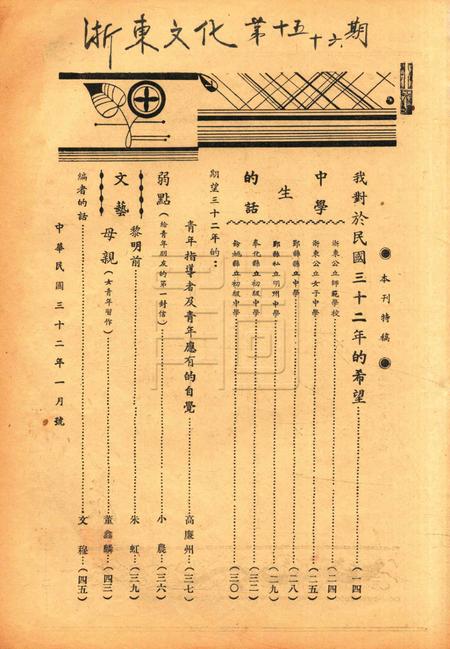 浙東文化 第十五十六期
◉ 本刊特稿 ◉
我對於民國三十二年的希望……(一四)
中學生的話
浙東公立師範學校……(二四)
浙東公立女子中學……(二五)
鄞縣縣立中學……(二八)
鄞縣私立明州中學……(二九)
奉化縣立初級中學……(三二)
餘姚縣立初級中學……(三〇)
期望三十二年的:
青年指導者及青年應有的自覺……高廉州……(三七)
弱點(給青年朋友的第一封信)……小農……(三六)
文藝
黎明前……朱虹……(三九)
母親(女青年習作)……董鑫麟……(四三)
編者的話……文穆……(四五)
中華民國三十二年一月號